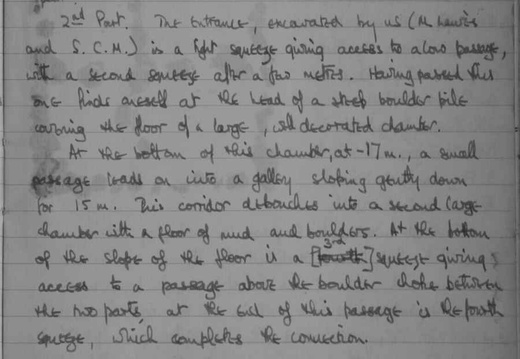 2nd Part. The Entrance, excavated by us (M. Lewis
and S.C.M.) is a tight squeeze giving access to a low passage,
with a second squeeze after a few metres. Having passed this
one finds oneself at the head of a steep boulder pile
covering the floor of a large, well decorated chamber.
At the bottom of this chamber, at -17 m., a small
passage leads on into a gallery sloping gently down
for 15 m. This corridor debouches into a second large
chamber with a floor of mud and boulders. At the bottom
of the slope of the floor is a [fourth] 3rd squeeze giving
access to a passage above the boulder choke between
the two parts, at the end of this passage is the fourth
squeeze, which completes the connection.